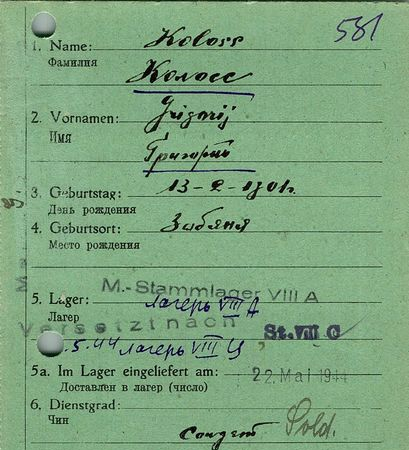 581
1. Name: Koloss
Фамилия Колосс
2. Vornamen: Grigorij
Имя Григорий
3. Geburtstag: 13-2-1901.
День рождения
4. Geburtsort: Забяня
Место рождения
M.-Stammlager VIII A
5. Lager: лагерь VIII A
Лагер
Versetzt nach St. VIII C
.5.44 лагерь VIII Ц
5a. Im Lager eingeliefert am: 22. Mai 1944
Доставлен в лагер (число)
6. Dienstgrad: Sold.
Чин
Солдат